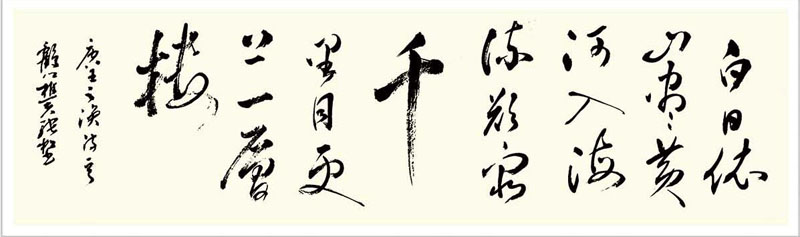 白日依
山尽黄
河入海
流欲穷
千
里目更
上一層
楼
唐王之渙诗